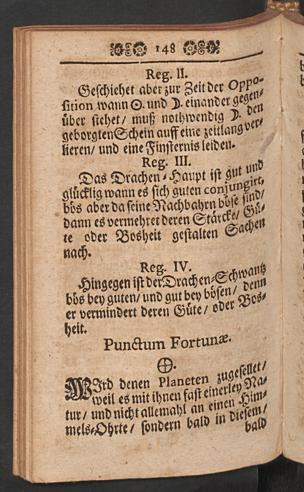 148
Reg. II.
Geschiehet aber zur Zeit der Oppo-
sition wann ☉. und ☽. einander gegen-
über stehet / muß nothwendig ☽. den
geborgten Schein auff eine zeitlang ver-
lieren / und eine Finsternis leiden.
Reg. III.
Das Drachen-Haupt ist gut und
glücklig wann es sich guten conjungirt,
bös aber da seine Nachbahrn böse sind /
dann es vermehret deren Stärcke / Gü-
te oder Bosheit gestalten Sachen
nach.
Reg. IV.
Hingegen ist der Drachen-Schwantz
bös bey guten / und gut bey bösen / denn
er vermindert deren Güte / oder Bos-
heit.
Punctum Fortunæ.
⊕.
WIrd denen Planeten zugesellet /
weil es mit ihnen fast einerley Na-
tur / und nicht allemahl an einen Him-
mels-Ohrte / sondern bald in diesem /
bald